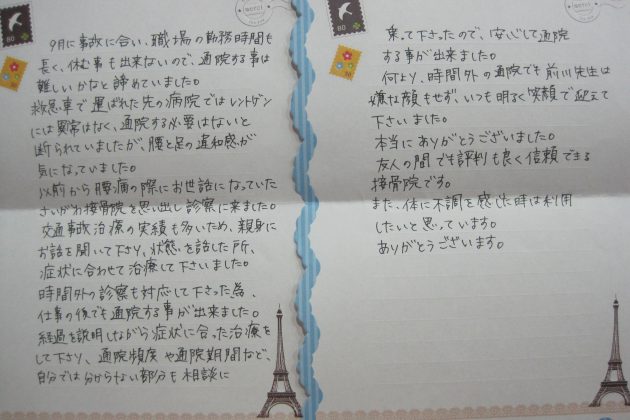 9月に事故に合い、職場の勤務時間も
長く、休む事も出来ないので、通院する事は
難しいかなと諦めていました。
救急車で運ばれた先の病院ではレントゲン
には異常はなく、通院する必要はないと
断られていましたが、腰と足の違和感が
気になっていました。
以前から腰痛の際にお世話になっていた
さいがわ接骨院を思い出し診察に来ました。
交通事故治療の実績も多いため、親身に
お話を聞いて下さり、状態を話した所、
症状に合わせて治療して下さいました。
時間外の診察も対応して下さった為、
仕事の後でも通院する事が出来ました。
経過を説明しながら症状に合った治療を
して下さり、通院頻度や通院期間など、
自分では分からない部分も相談に
乗って下さったので、安心して通院
する事が出来ました。
何より、時間外の通院でも前川先生は
嫌な顔もせず、いつも明るく笑顔で迎えて
下さいました。
本当にありがとうございました。
友人の間でも評判も良く信頼できる
接骨院です。
また、体に不調を感じた時は利用
したいと思っています。
ありがとうございます。
80
merci
80
merci